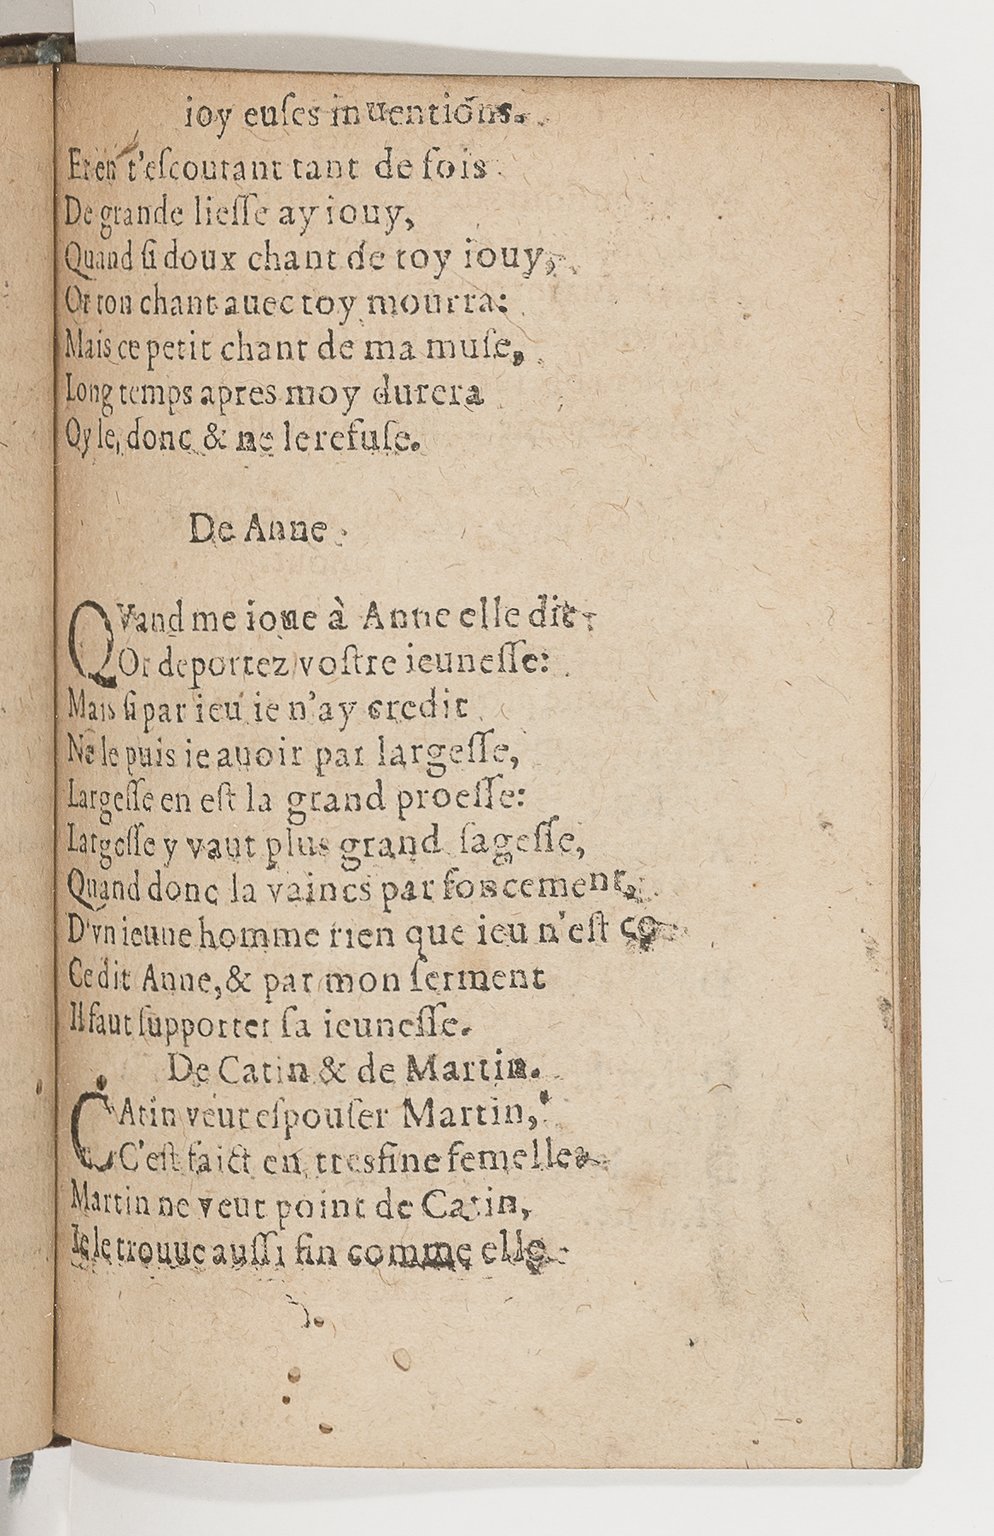 ioy euſes inuentiõns.
Et en t'eſcoutant tant de fois
De grande lieſſe ay iouy,
Quand ſi doux chant de toy iouy,
Or ton chant auec toy mourra:
Mais ce petit chant de ma muſe,
Long temps apres moy durera
Oy le, donc & ne le refuſe.
De Anne.
QVand me ioue à Anne elle dit
Or deportez voſtre ieuneſſe:
Mais ſi par ieu ie n'ay credit
Ne le puis ie auoir par largeſſe,
Largeſſe en eſt la grand proeſſe:
Largeſſe y vaut plus grand ſageſſe,
Quand donc la vaincs par foncement,
D'vn ieune homme rien que ieu n'eſt
Ce dit Anne, & par mon ſerment
Il faut ſupporter ſa ieuneſſe.
De Catin & de Martin.
CAtin veut eſpouſer Martin,
C'eſt faict en treſfine femelle
Martin ne veut point de Catin,
Ie le trouue auſſi fin comme elle